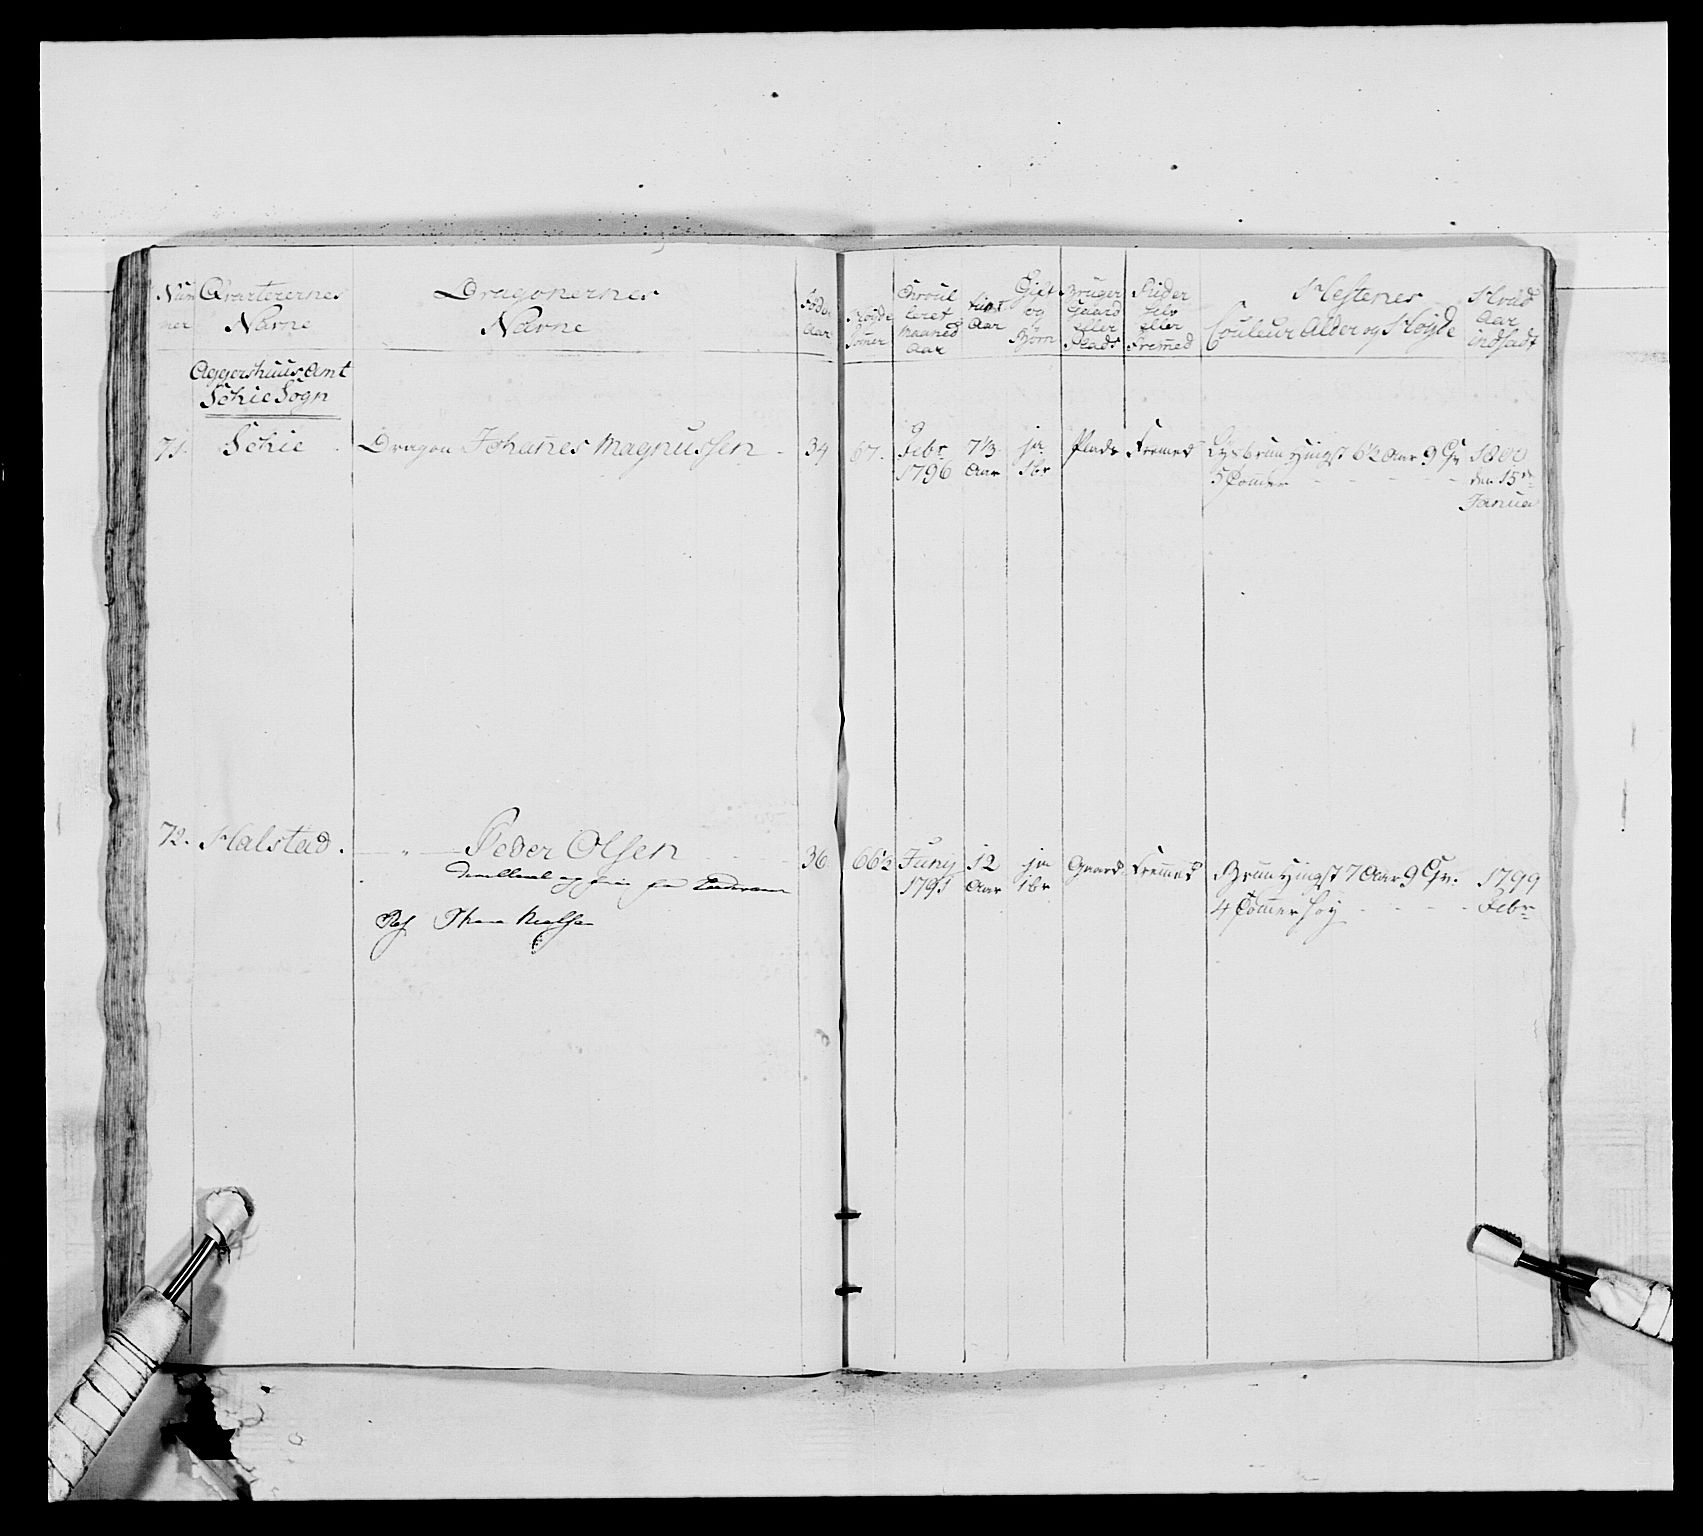 Num mer
Qvarterernes Navne
Dragonernes Navne
Føde Aar
Høyde Tomer
Enroul leret Maaned Aar
tient Aar
Gift og Børn
Bruger Gaard eller Plads
Riider selv eller Fremed
Hestenes Couleur Alder og Høyde
Hvad Aar indsadt
Aggershuus Amt
Schie Sogn
71. Schie Dragon Johannes Magnussen 34 67. Febr 1796 7 1/3 Aar ja 1 br Plads Fremed Lysbrun Hingst 6 1/2 Aar 9 Qr 5 Tomer 1800 den 15de Januar
72. Halstad. " Peder Olsen 36 66 1/2 Juny 1791 12 Aar ja 1 br Gaard Fremed Brun Hingst 7 Aar 9 Qr. 4 Tomer høy 1799 Febr